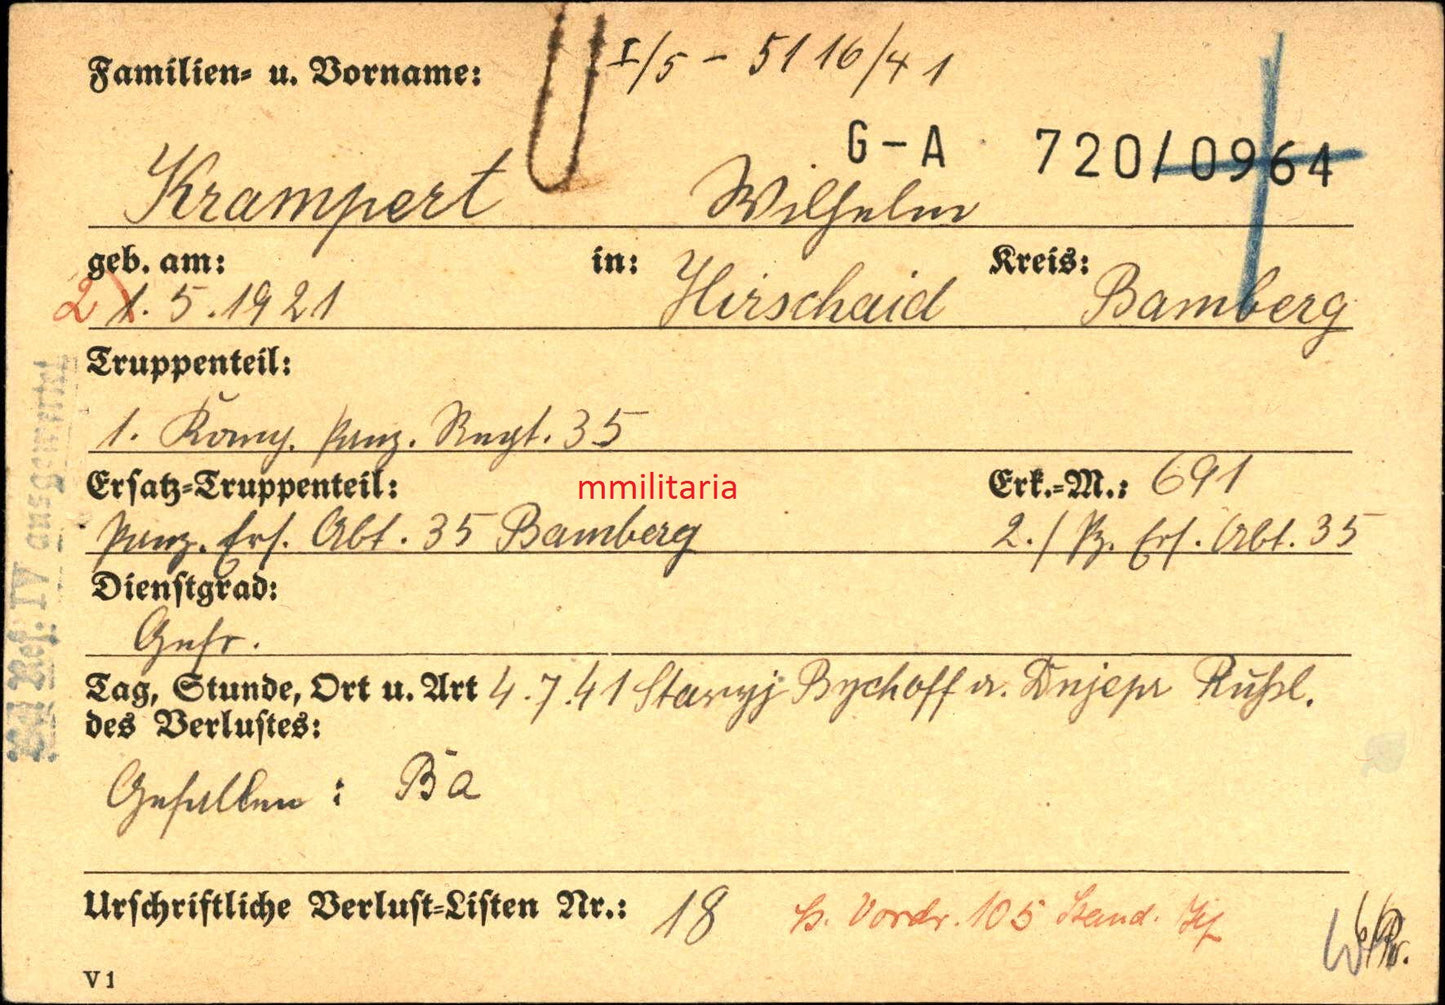 Familien- u. Vorname: I/5 - 5116/41
G-A 720/0964
Krampert Wilhelm
geb. am: in: Kreis:
2) 1. 5. 1921 Hirschaid Bamberg
Truppenteil:
1. Komp. Panz. Regt. 35
mmilitaria
Ersatz-Truppenteil: Erk.-M.: 691
Panz. Ers. Abt. 35 Bamberg 2./ Pz. Ers. Abt. 35
Dienstgrad:
Gefr.
Tag, Stunde, Ort u. Art 4.7.41 Staryj Bychoff a. Dnjepr Rußl.
des Verlustes:
Gefallen : Ba
Urschriftliche Verlust-Listen Nr.: 18 Vordr. 105
V 1
Ref. IV ausgewertet